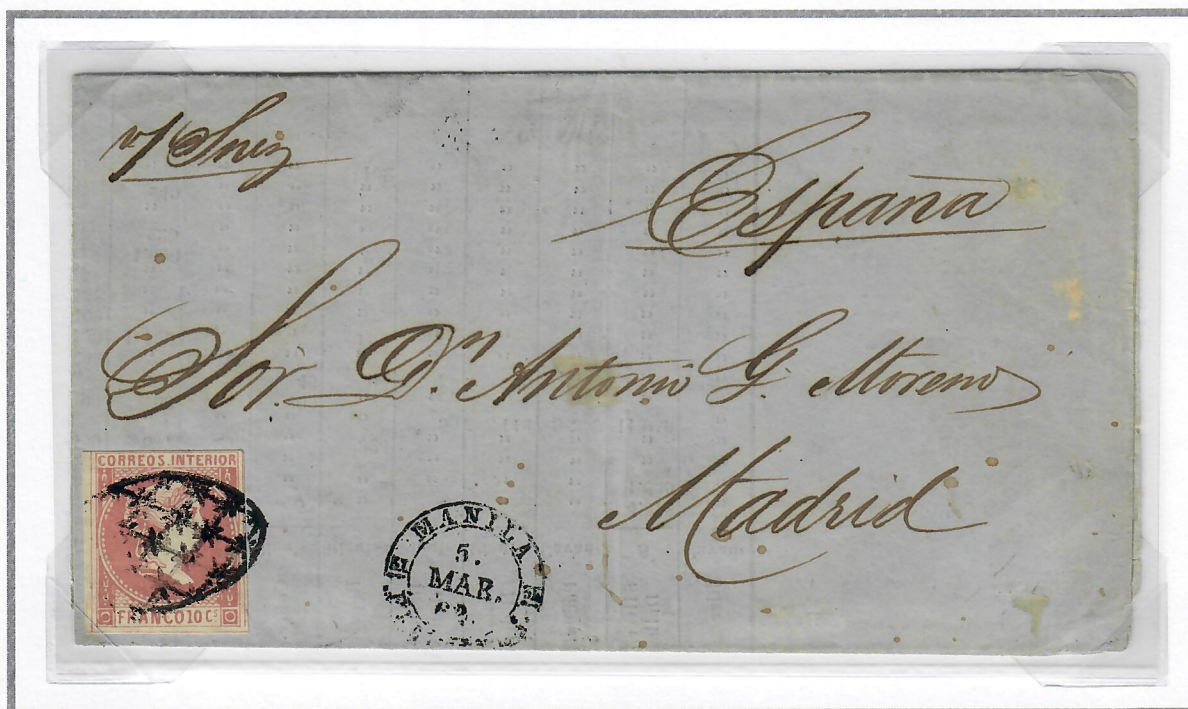 v/ Suez
España
Sor. Dn. Antonio G. Moreno
Madrid
CORREOS. INTERIOR
FRANCO 10 Cs
MANILA
5.
MAR.
62.